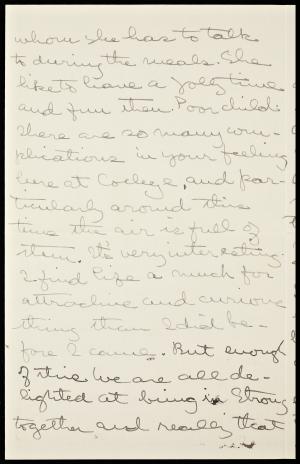 whom she has to talk
to during the meals. She
likes to have a jolly time
and fun then. Poor child.
There are so many com-
plications in your feeling
here at College, and par-
ticularly around this
time the air is full of
them. It's very interesting.
I find life a much for
attractive and curious
thing than I did be-
fore I came. But enough
of this. We are all de-
lighted at being in Strong
together and really that